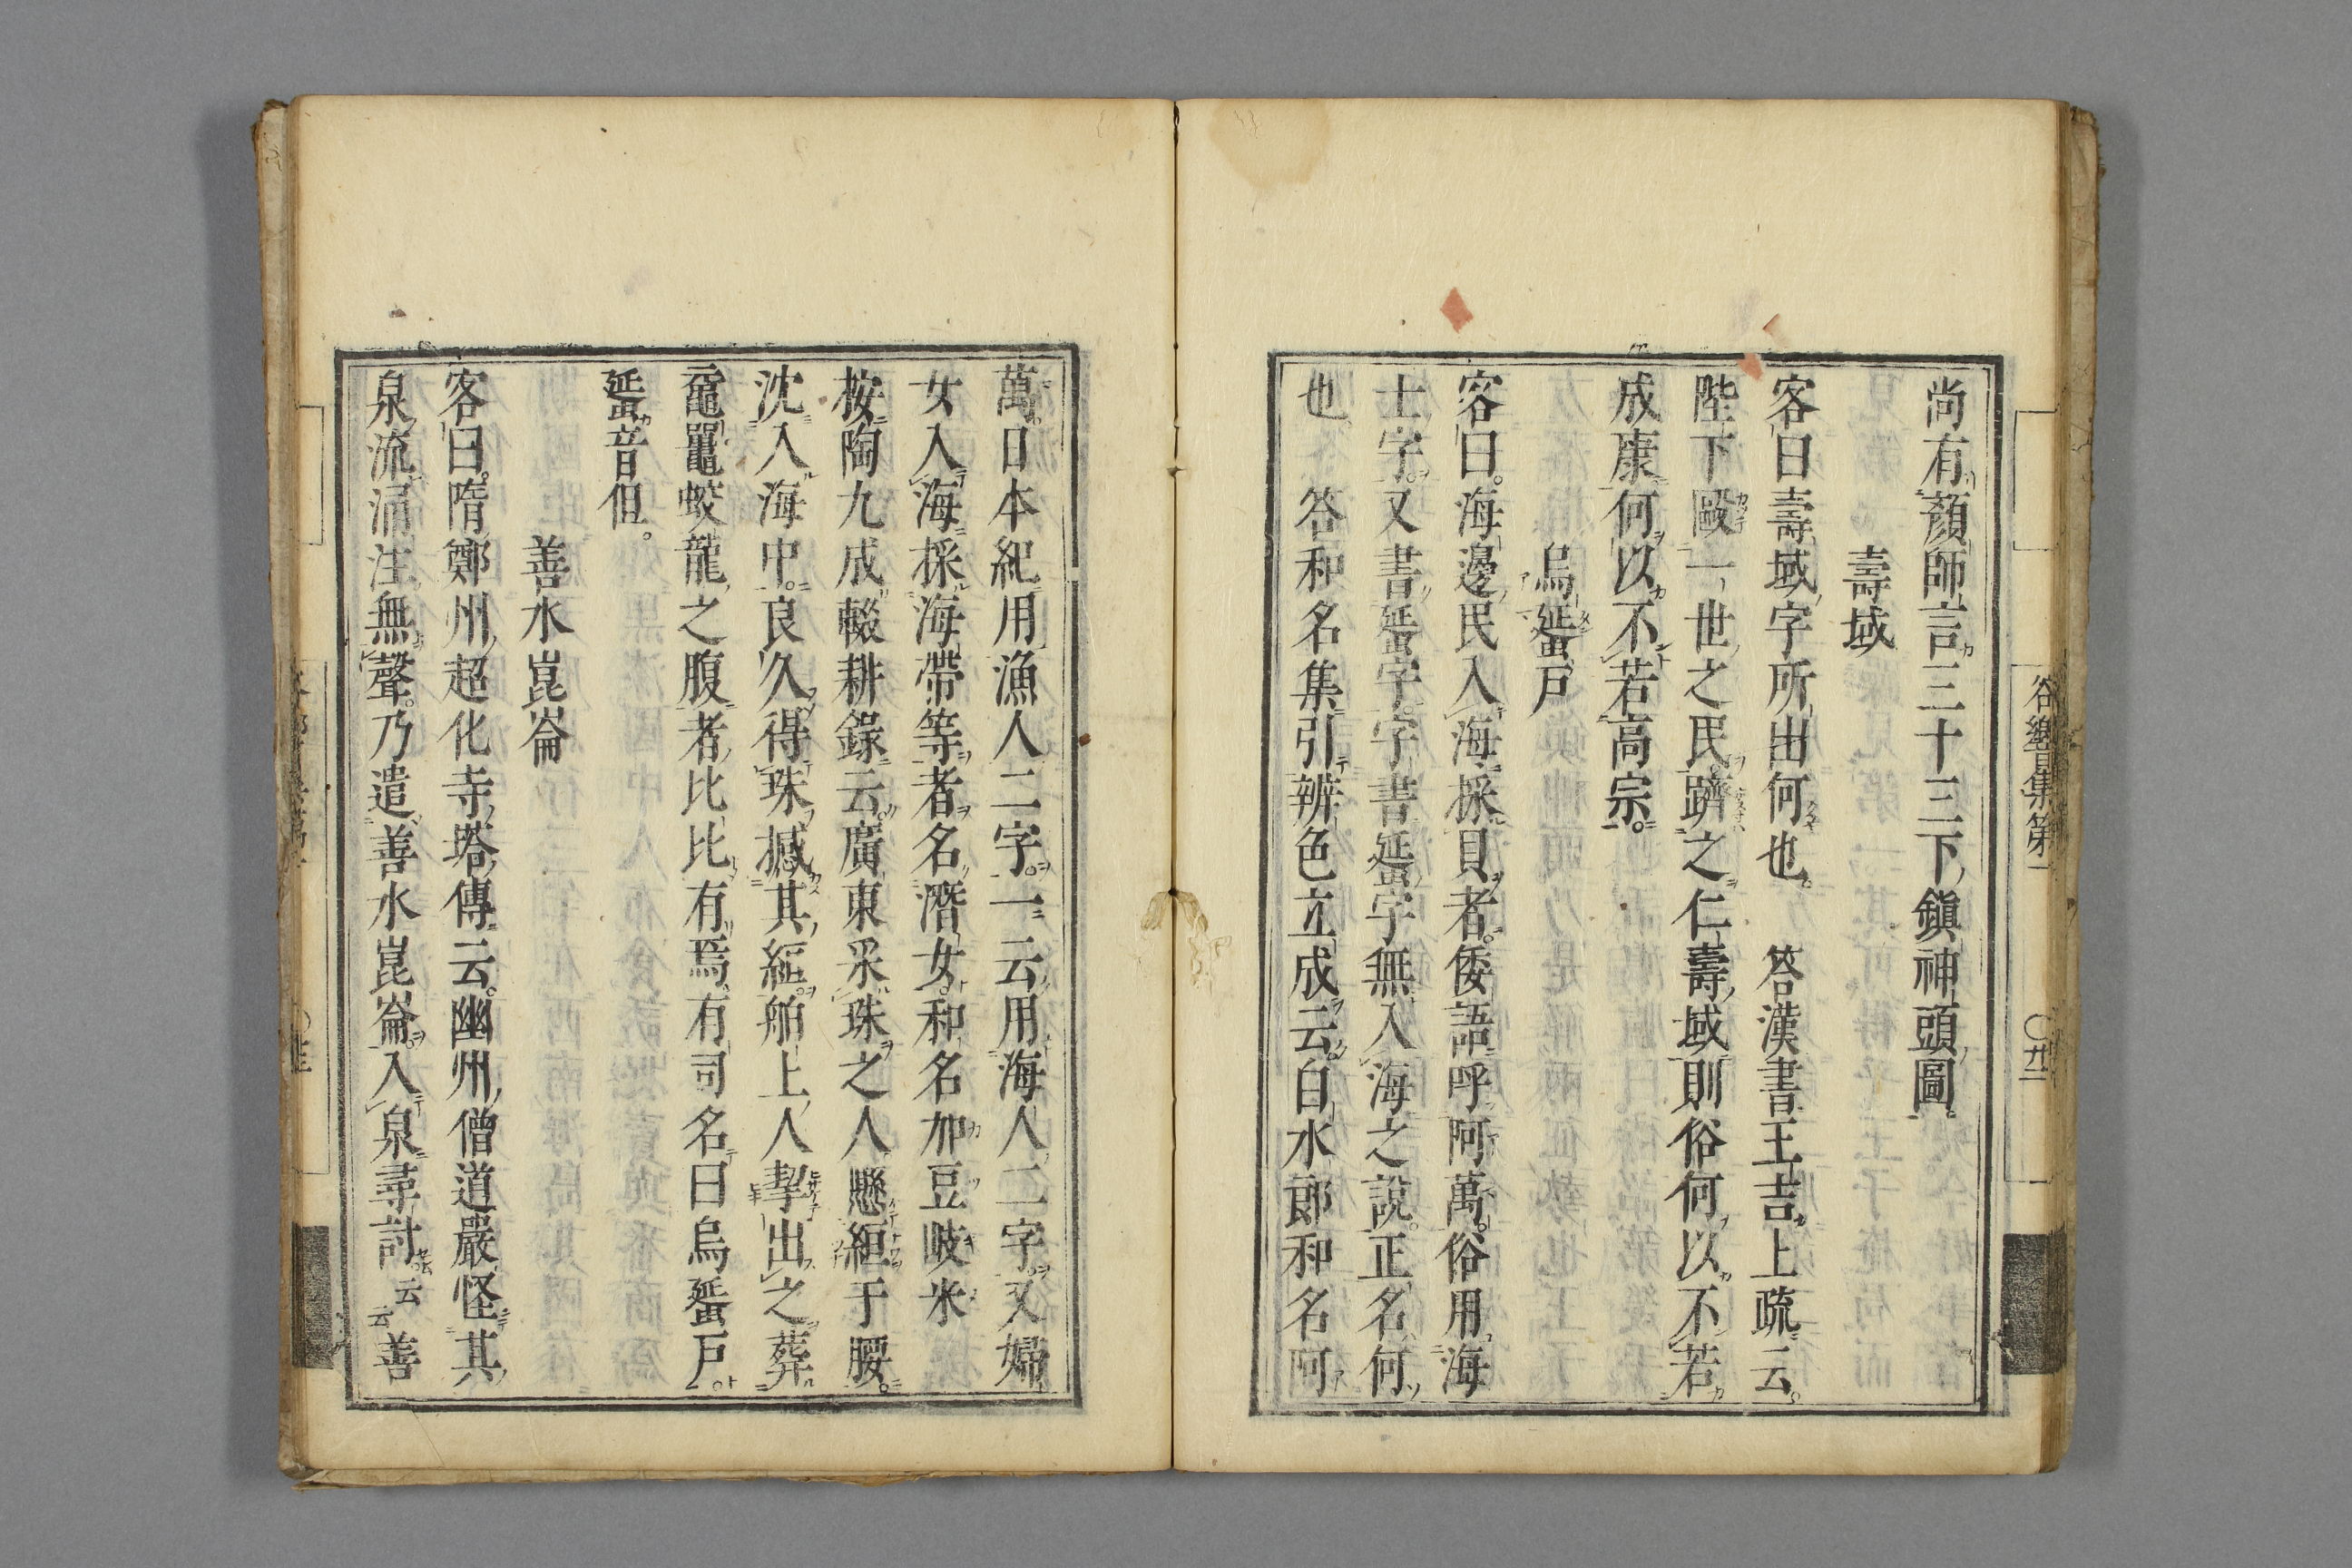 尚有顏師言三十三下鎭神頭圖。
壽域
客曰壽域字所出何也。　答漢書王吉上疏云。
陛下毆一世之民躋之仁壽域則俗何以不若
成康何以不若高宗。
烏蜑戶
客曰。海邊民入海採貝者。倭語呼阿萬。俗用海
士字。又書蜑字。字書蜑字無入海之說。正名何
也　答和名集引辨色立成云。白水郎和名阿
谷響集第一
〇廿二
萬。日本紀用漁人二字。一云用海人二字。又婦
女入海採海帶等者名潛女。和名加豆岐米
按陶九成輟耕錄云。廣東采珠之人。懸絙于腰。
沈入海中。良久得珠撼其絙。舶上人挈出之葬
黿鼉蛟龍之腹者比比有焉。有司名曰烏蜑戶。
蜑音但。
善水崑崙
客曰。隋鄭州超化寺塔傳云。幽州僧道嚴怪其
泉流涌注無聲。乃遣善水崑崙。入泉尋討。云云善